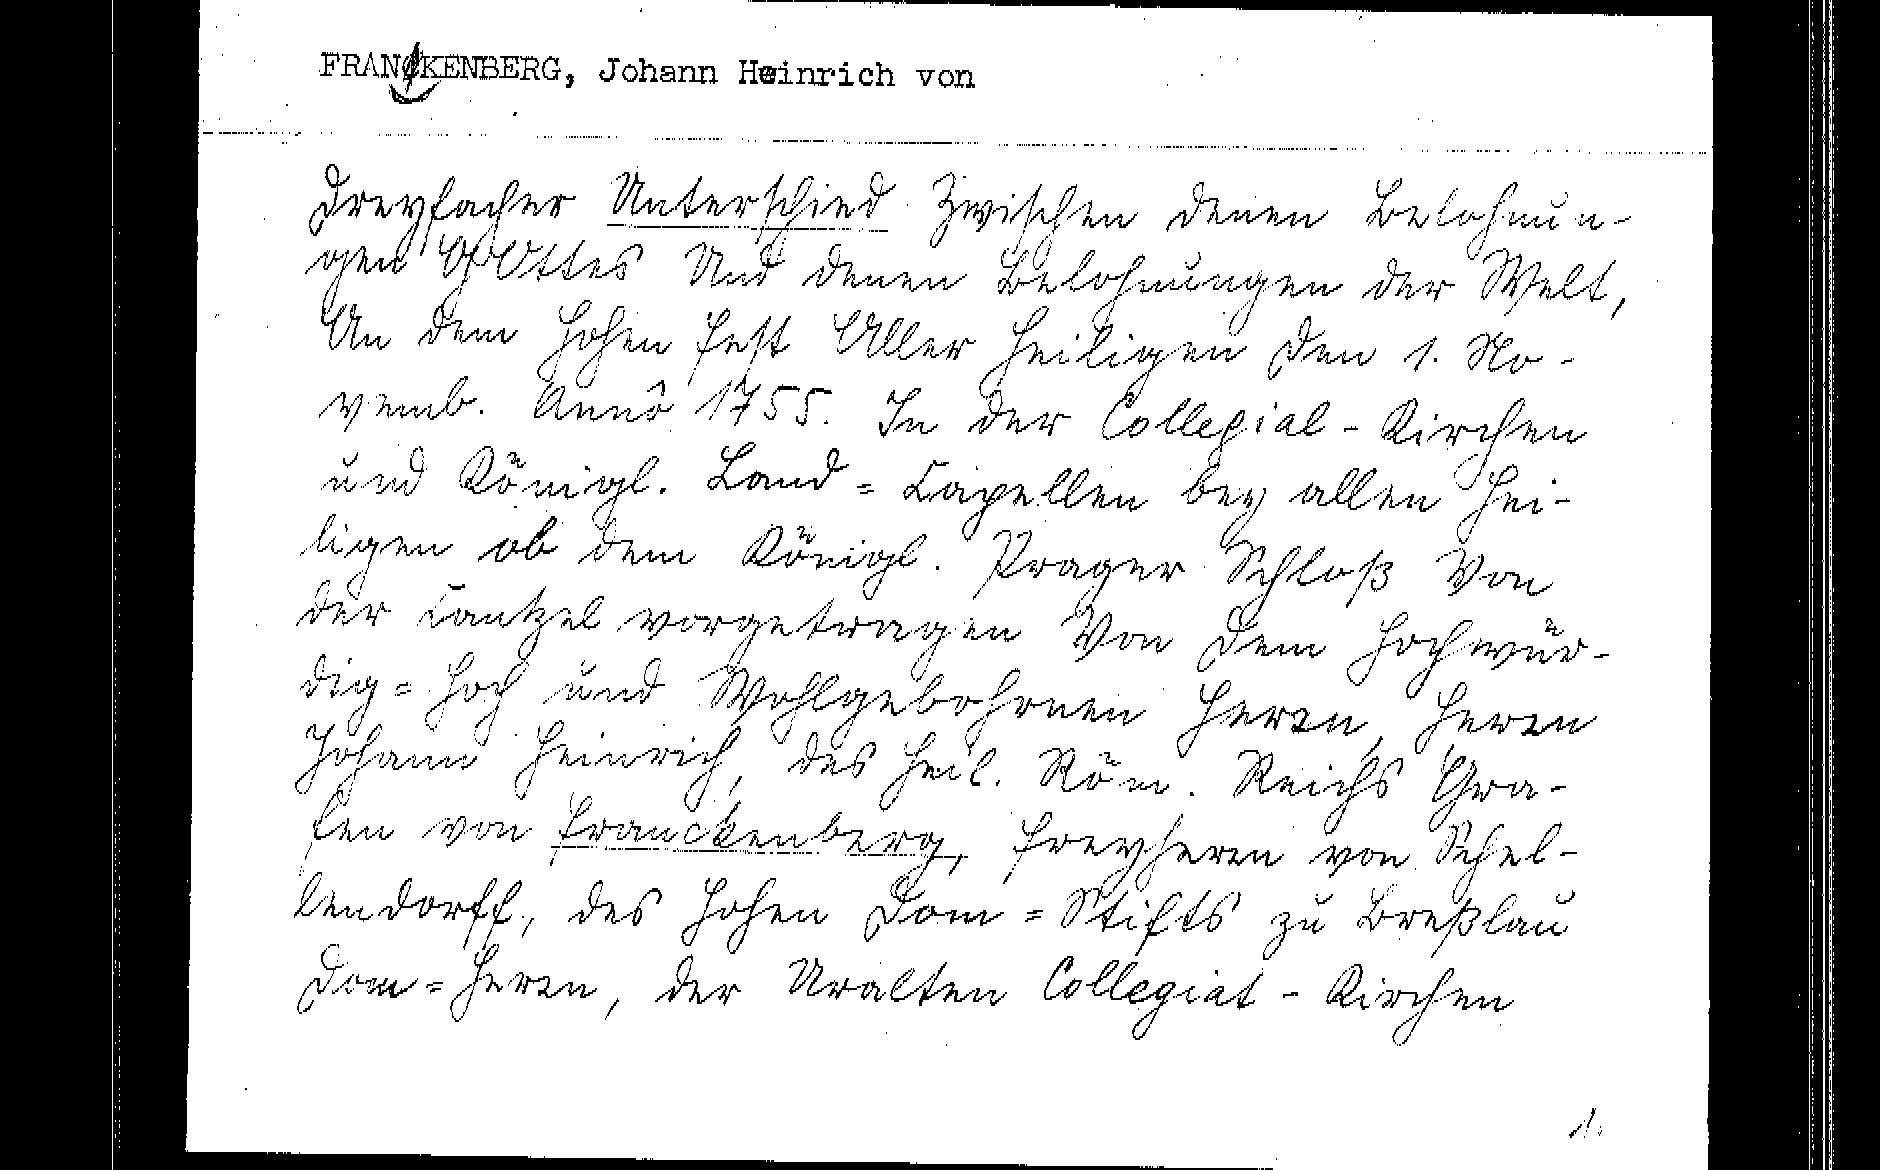 FRANCKENBERG, Johann Heinrich von
Dreyfacher Unterschied Zwischen denen Belohnun-
gen GOttes Und denen Belohnungen der Welt,
An dem hohen Fest Aller Heiligen Den 1. No-
vemb. Annô 1755. In der Collegial-Kirchen
und Königl. Land=Capellen bey allen Hei-
ligen ob dem Königl. Prager Schloß Von
der Cantzel vorgetragen Von Dem Hochwür-
dig=Hoch und Wohlgebohrnen Herrn, Herrn
Johann Heinrich, des Heil. Röm. Reichs Gra-
fen von Franckenberg, Freyherrn von Schel-
lendorff, des Hohen Dom=Stifts zu Breßlau
Dom=Herrn, der Uralten Collegiat-Kirchen
1.